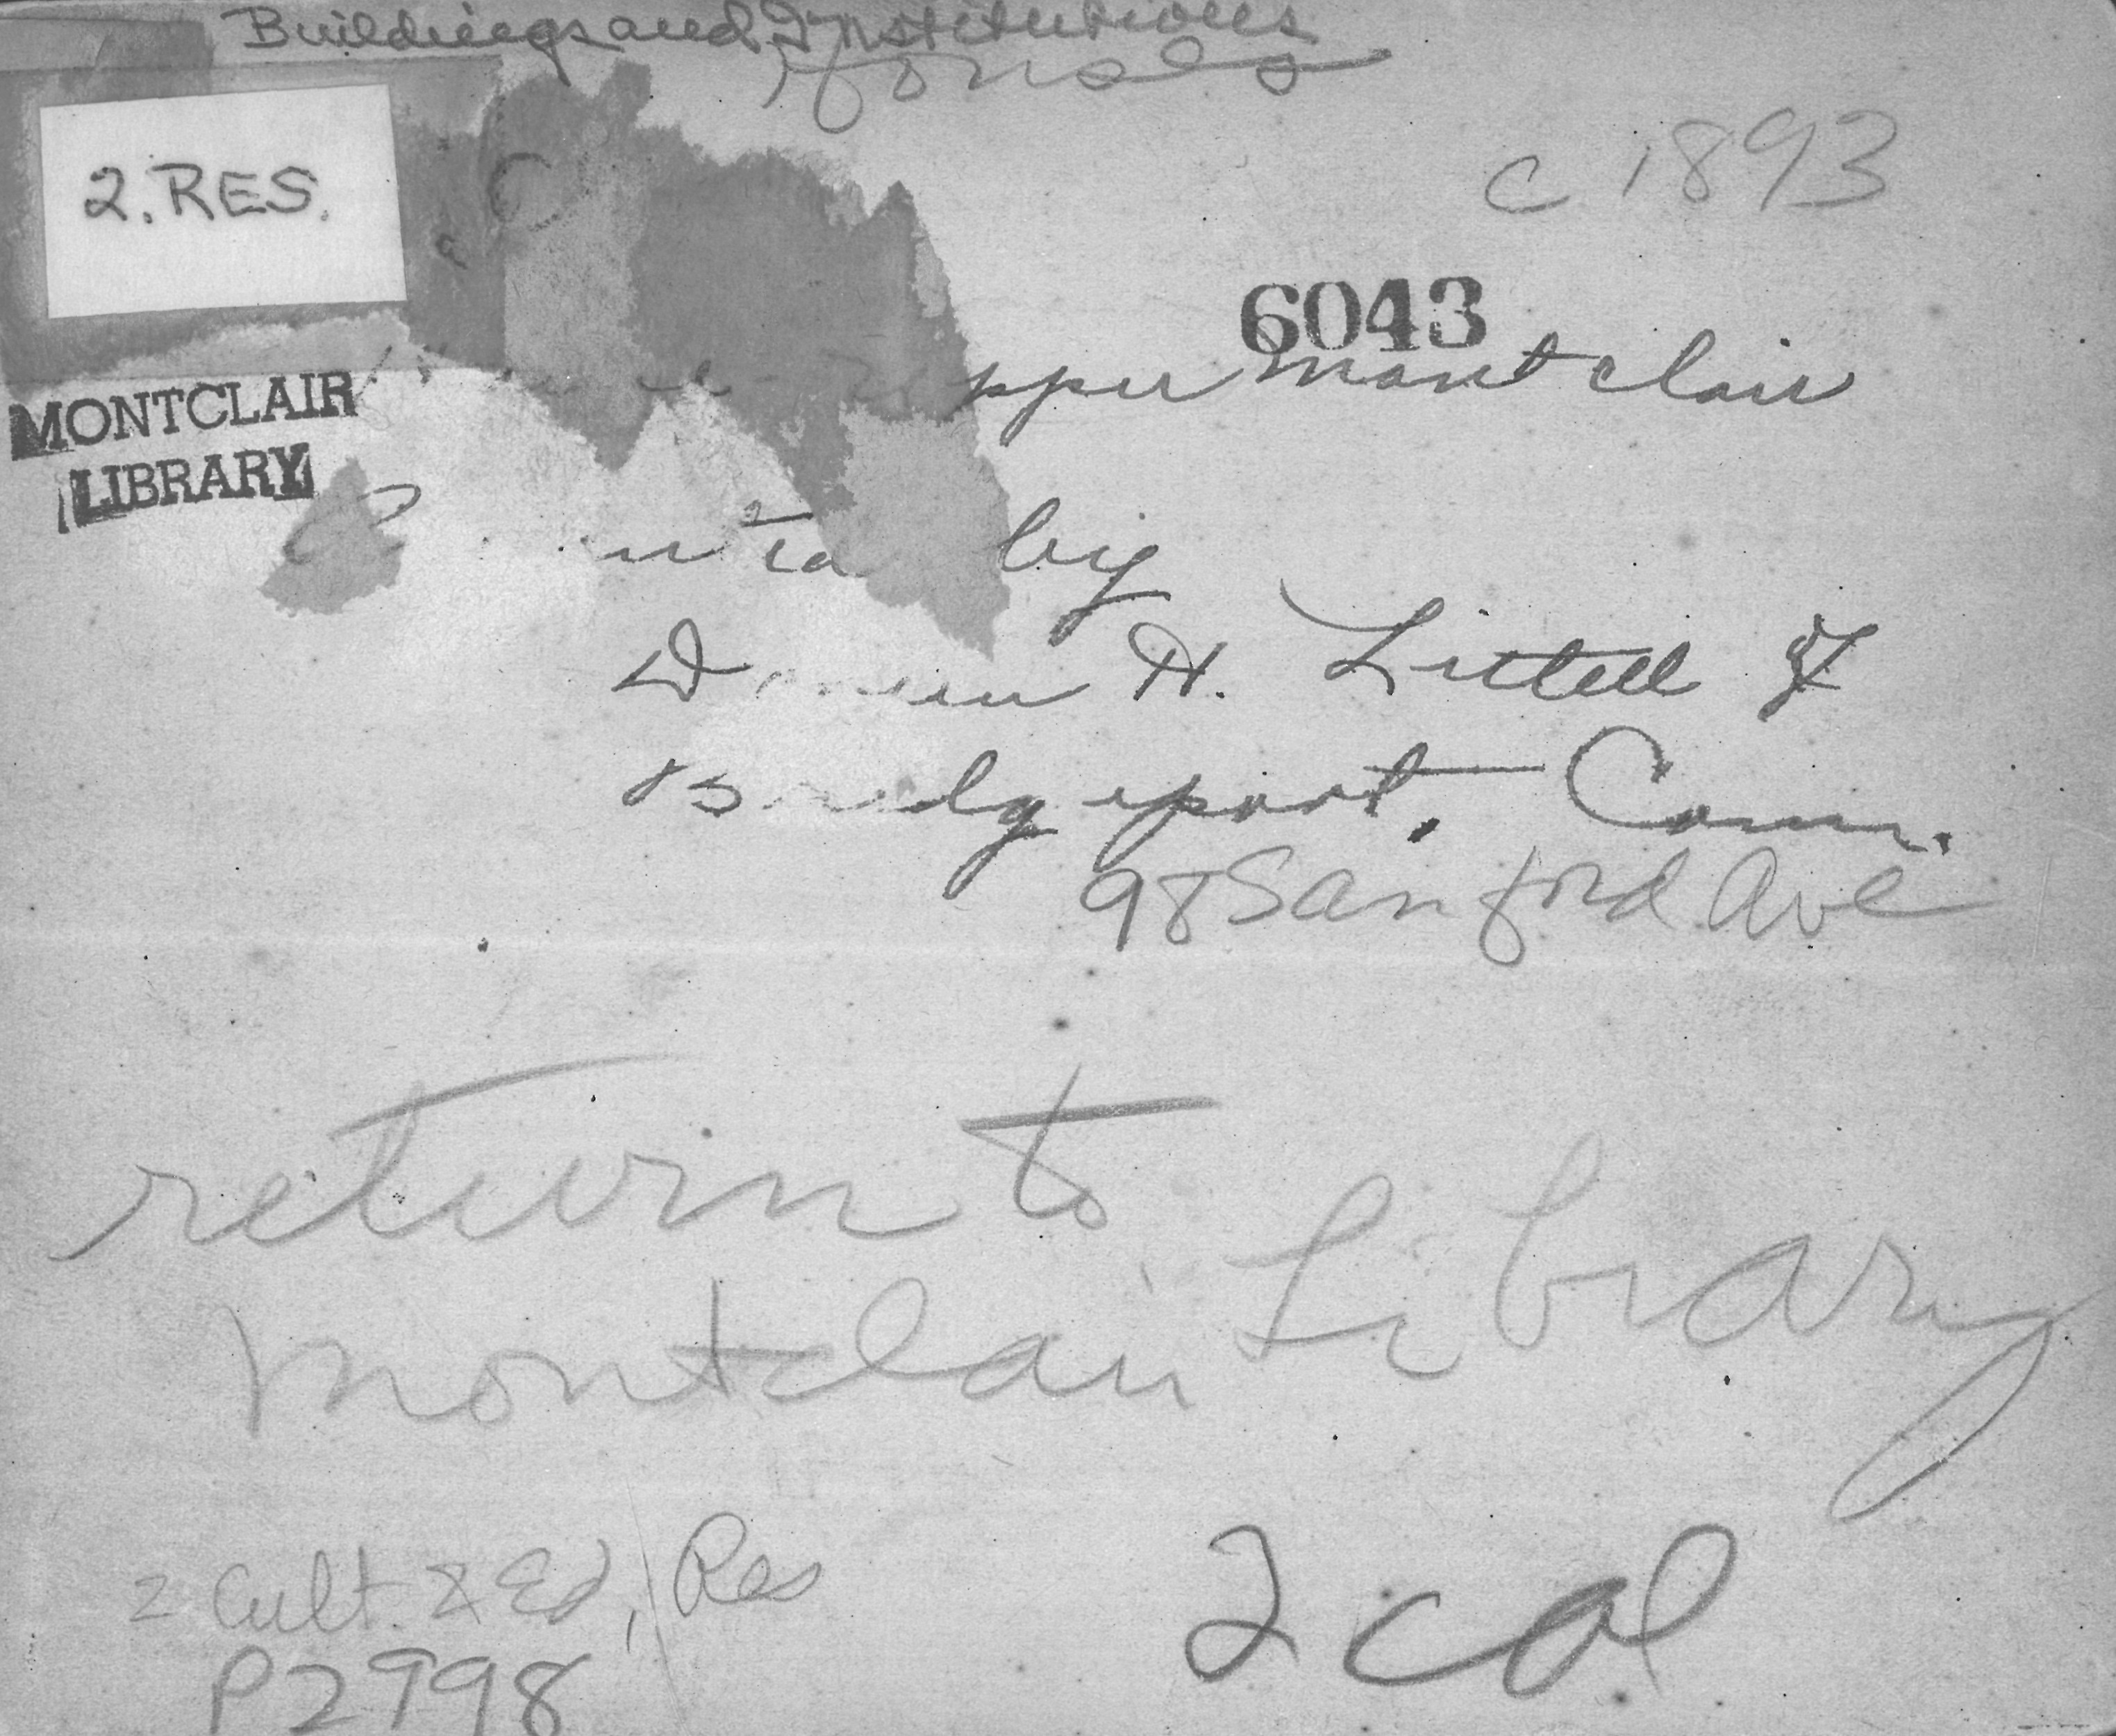 Buildings and Institutions
Houses
c 1893
2. RES.
6043
MONTCLAIR
LIBRARY
Upper Montclair
by
H. Littell of
Bridgeport, Conn.
98 Sanford Ave
return to
Montclair Library
2 Cult. & Ed, Res
2 col
P2998